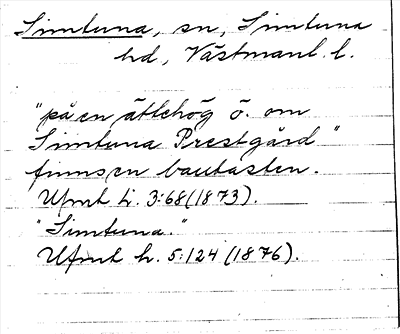 Simtuna, sn, Simtuna
hd, Västmanl. l.
"på en ättehög ö. om
Simtuna Prestgård"
finns en bautasten.
Ufmt h. 3:68 (1873).
"Simtuna."
Ufmt h. 5:124 (1876).